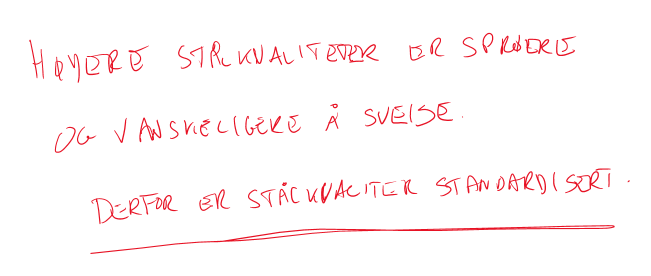 HØYERE STÅLKVALITETER ER SPRØERE
OG VANSKELIGERE Å SVEISE.
DERFOR ER STÅLKVALITER STANDARDISERT.